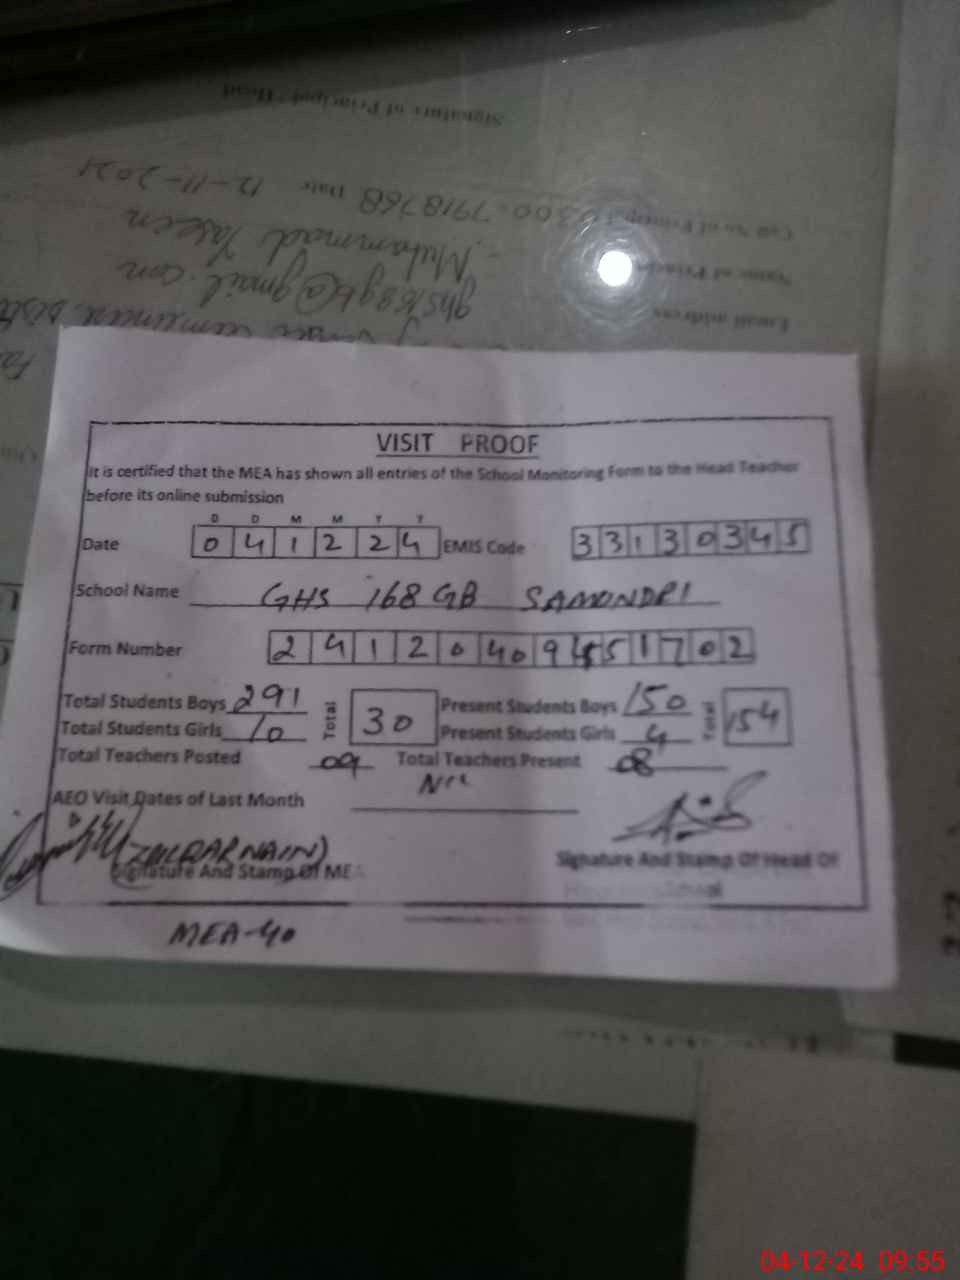 Signature of Principal / Head
Cell No of Principal 0300-7918768 Date 12-11-2021
Name of Principal Muhammad Yaseen
Email address ghs168gb@gmail.com
VISIT PROOF
It is certified that the MEA has shown all entries of the School Monitoring Form to the Head Teacher
before its online submission
D D M M Y Y
Date 0 4 1 2 2 4 EMIS Code 3 3 1 3 0 3 4 5
School Name GHS 168 GB SAMUNDRI
Form Number 2 4 1 2 0 40 9 45 5 1 7 0 2
Total Students Boys 291 Total 30 Present Students Boys 150 Total 154
Total Students Girls 10 Present Students Girls 4
Total Teachers Posted 09 Total Teachers Present 08
AEO Visit Dates of Last Month Nil
(ZULQARNAIN)
Signature And Stamp Of MEA Signature And Stamp Of Head Of
School
MEA-40
04-12-24 09:55